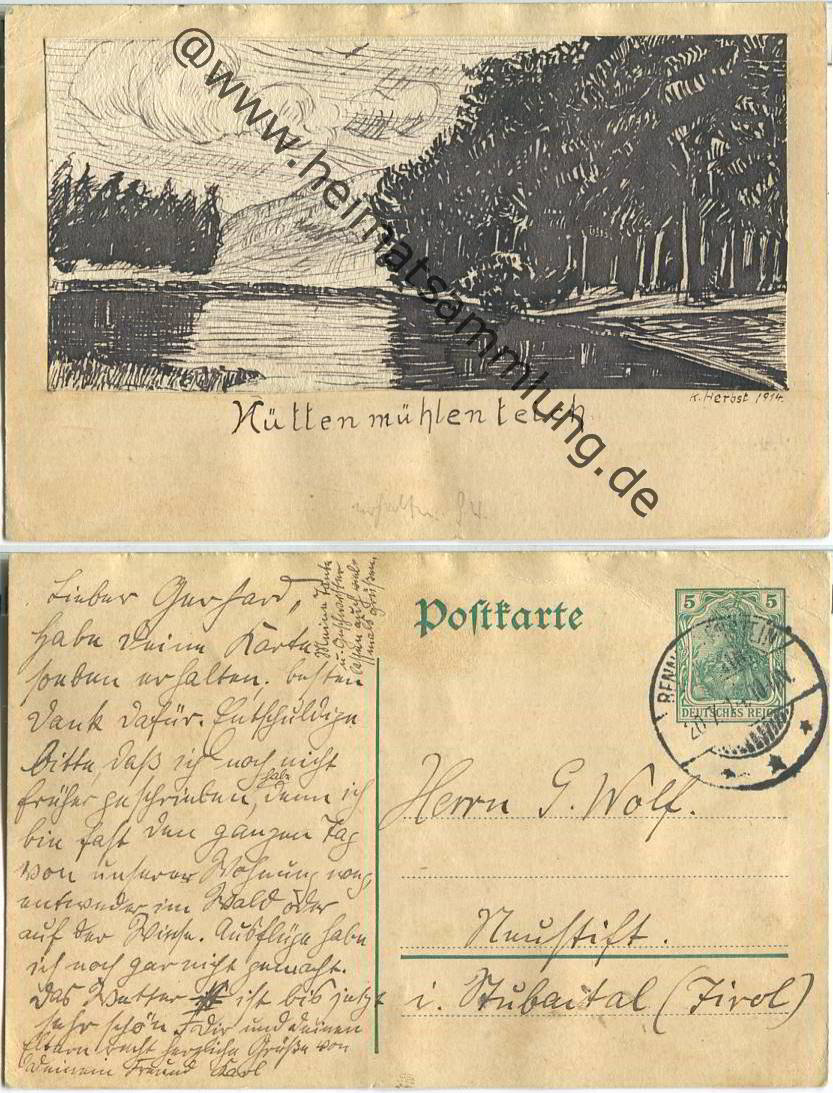 @www.heimatsammlung.de
K. Herbst 1914.
Hüttenmühlenteich
erhalten
Lieber Gerhard,
habe Deine Karte
soeben erhalten, besten
Dank dafür. Entschuldige
bitte, daß ich noch nicht
früher geschrieben habe, denn ich
bin fast den ganzen Tag
von unserer Wohnung weg,
entweder im Wald oder
auf der Wiese. Ausflüge habe
ich noch gar nicht gemacht.
Das Wetter ist bis jetzt
sehr schön. Dir und Deinen
Eltern recht herzliche Grüße von
Deinem Freund Karl
Meine Tante
u. Geschwister
lassen auch viel-
mals grüßen.
Postkarte
5 5
DEUTSCHES REICH
Herrn G. Wolf.
Neustift.
i. Stubaital (Tirol)